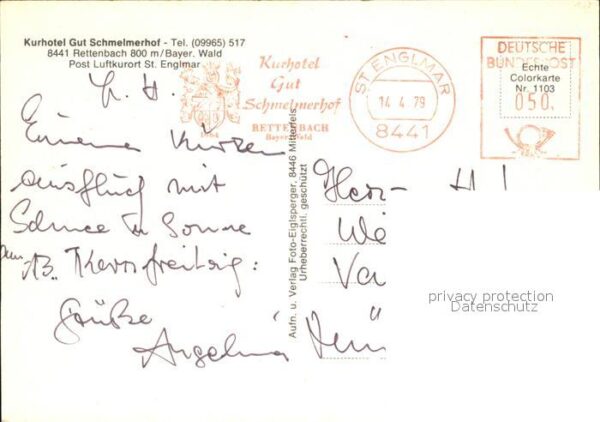 Kurhotel Gut Schmelmerhof - Tel. (09965) 517
8441 Rettenbach 800 m/Bayer. Wald
Post Luftkurort St. Englmar
Kurhotel
Gut
Schmelmerhof
RETTENBACH
Bayer. Wald
ST ENGLMAR
14.4.79
8441
DEUTSCHE
BUNDESPOST
Echte
Colorkarte
Nr. 1103
050
L. H.
Einen kurzen
Ausflug mit
Schnee u Sonne
Grüße
Angelina
Aufn. u. Verlag Foto-Eiglsperger, 8446 Mitterfels
Urheberrechtl. geschützt
Herr H
We
Va
privacy protection
Datenschutz